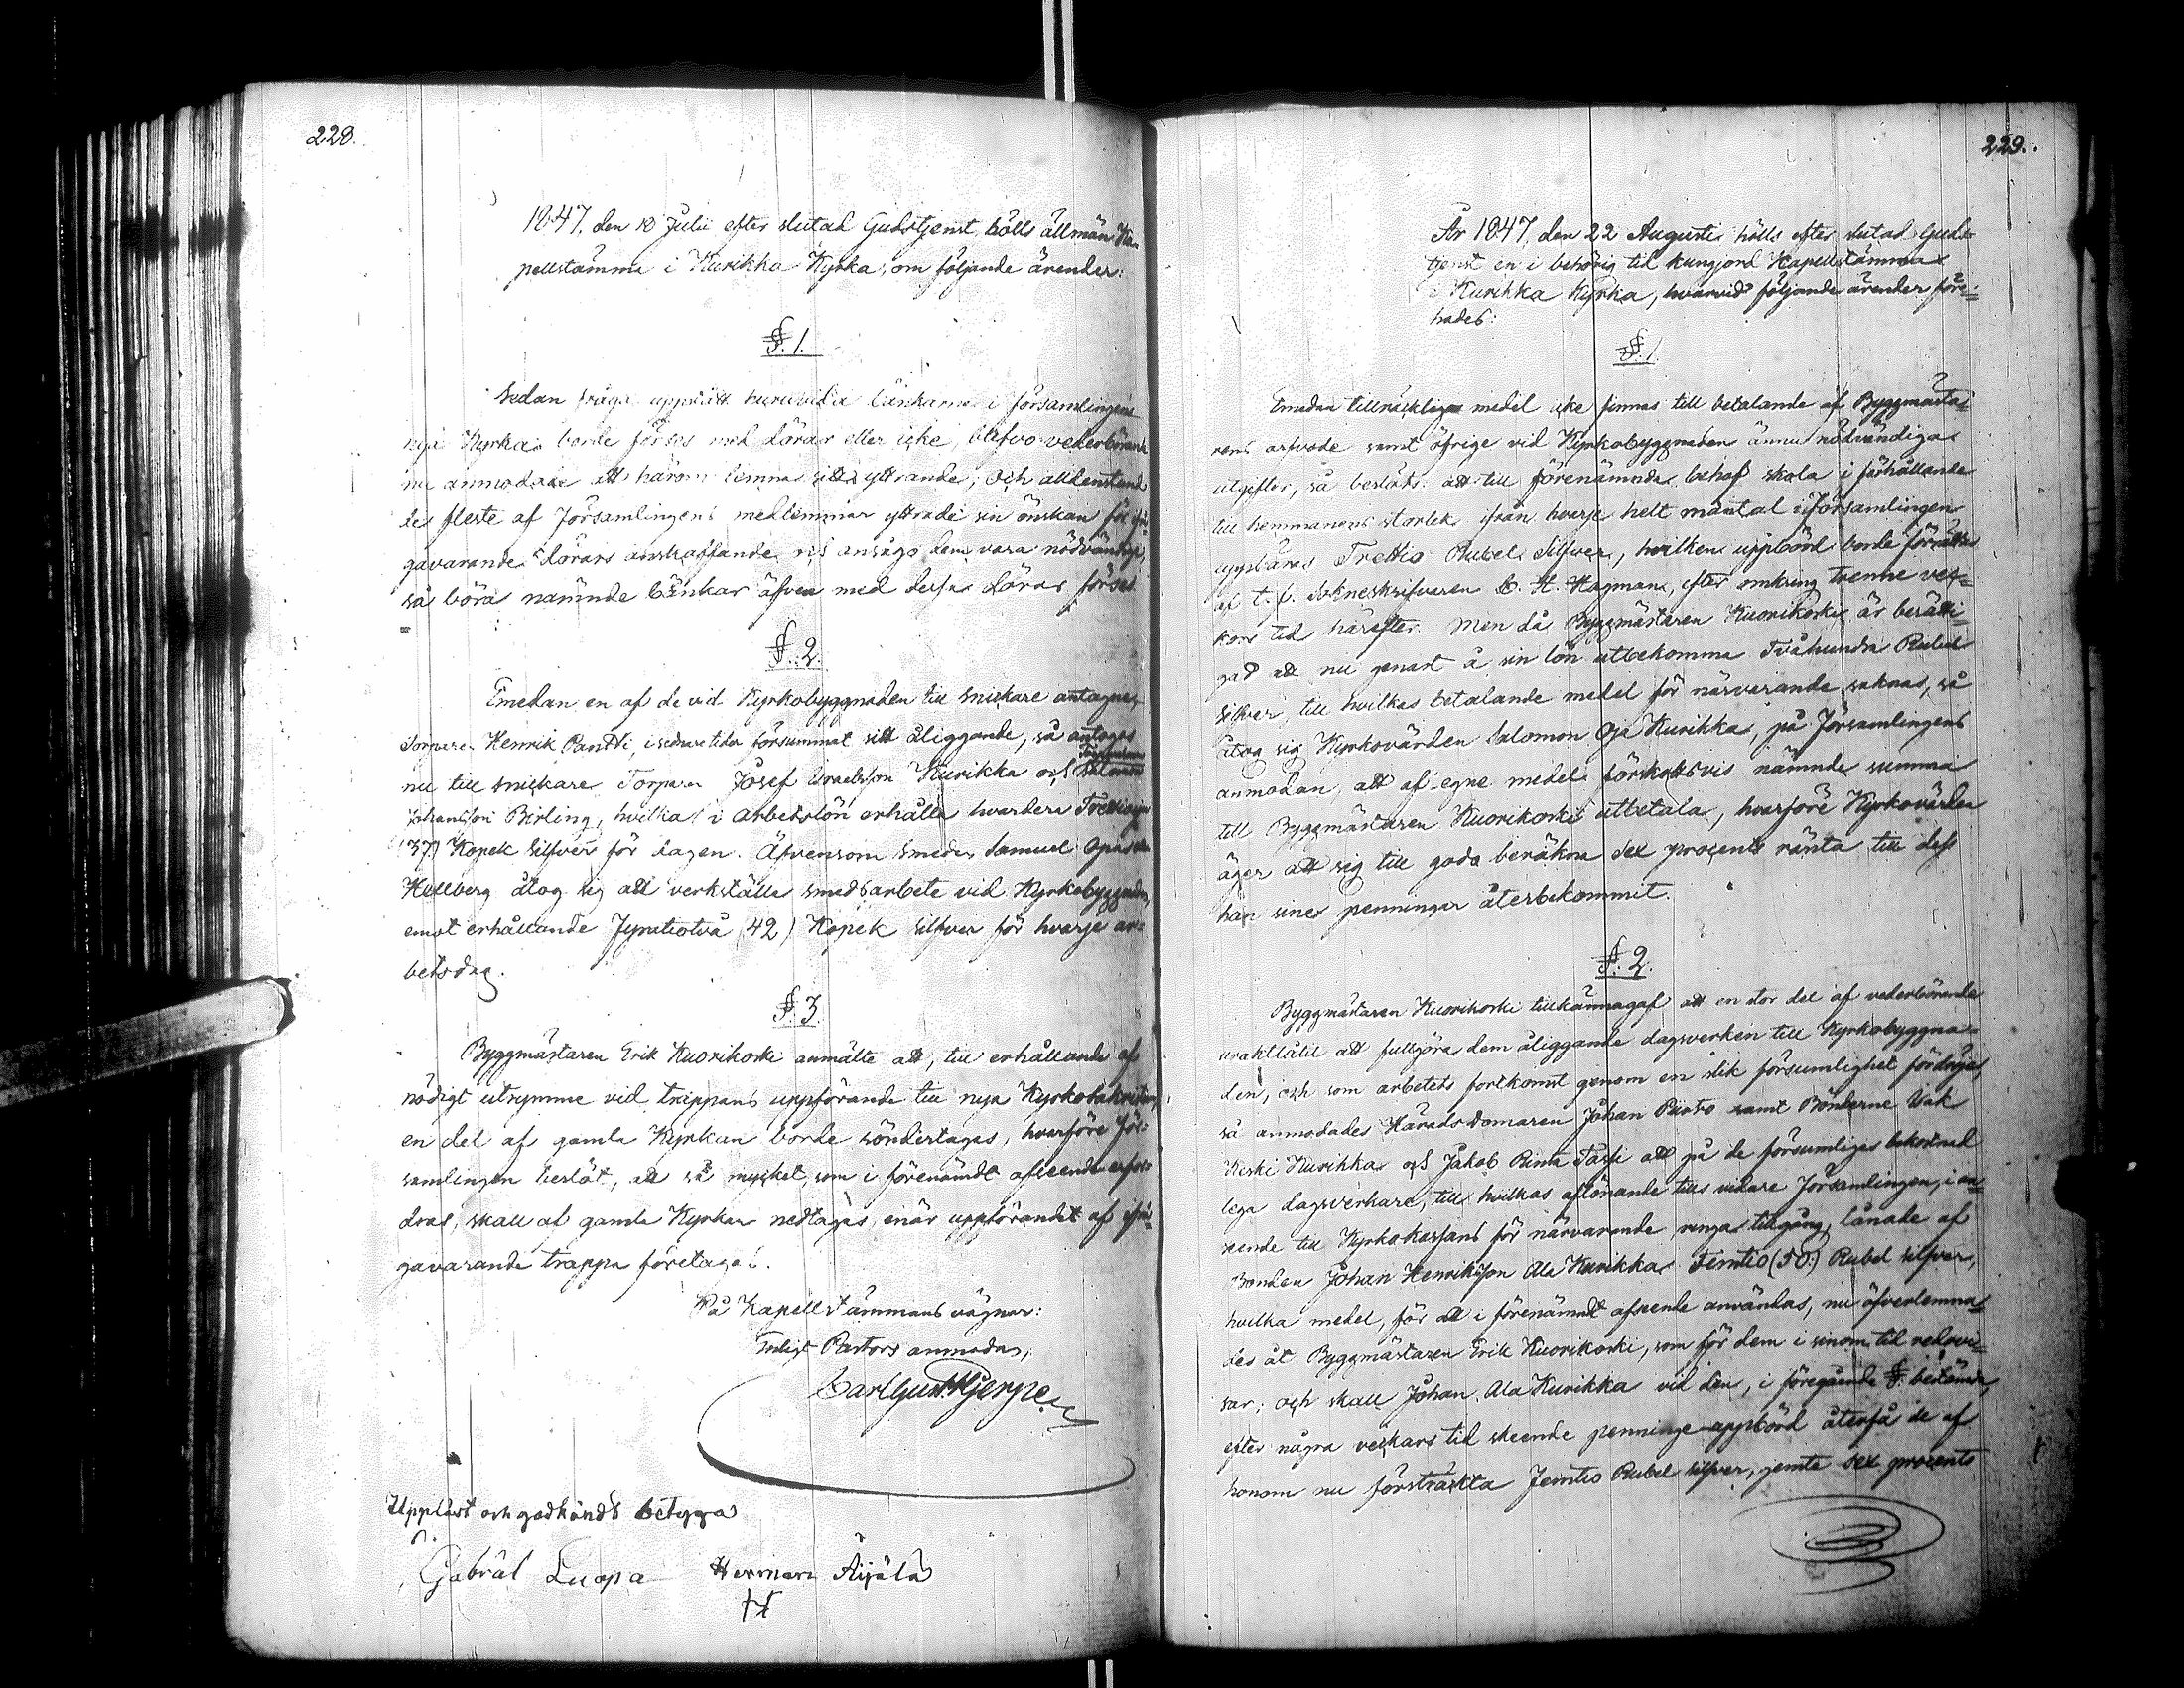 228.
1847, den 18 Julii efter slutad Gudstjenst, hölls allmän Ka-
pellstämma i Kurikka Kyrka, om följande ärender:
§. 1.
Sedan fråga uppstått huruvida bänkarne i församlingens
nya Kyrka borde förses med dörar eller icke, blefvo vederbörande
nu anmodade att härom lemna sitt yttrande; och alldenstund
de fleste af Församlingens medlemmar yttrade sin önskan för ifrå-
gavarande dörars anskaffande och ansågo dem vara nödvändige,
så böra nämnde bänkar äfven med dessa dörar förses.
§. 2.
Emedan en af de vid Kyrkobyggnaden till snickare antagne,
Sonare Henrik Pantti, i sednare tider försummat sitt åliggande, så antages
nu till snickare Torparen Josef Israelsson Kurikka och Salomon
Johansson Birling, hvilka i arbetslön erhålla hvardera Trettiosju
(37) Kopek Silfver för dagen. Äfvensom Smeden Samuel
Hellberg åtog sig att verkställa smedsarbete vid Kyrkobyggnaden,
emot erhållande Fyratiotvå (42) Kopek Silfver för hvarje ar-
betsdag.
§. 3.
Byggmästaren Erik Kuorikoski anmälte att, till erhållande af
nödigt utrymme vid trappans uppförande till nya Kyrkosakristian,
en del af gamla Kyrkan borde söndertagas, hvarföre För-
samlingen beslöt, att så mycket, som i förenämdt afseende erfor-
dras, skall af gamla Kyrkan nedtagas, enär uppförandet af ifrå-
gavarande trappa företages.
På Kapellstämmans vägnar:
Enligt Pastors anmodan,
Carl Gust. Hjerpe
Uppläst och godkändt betyga
Gabriel Luopa Herman Äijälä
229.
År 1847, den 22 Augusti hölls efter slutad Guds-
tjenst en i behörig tid kungjord Kapellstämma
i Kurikka Kyrka, hvarvid följande ärender före-
hades:
§. 1.
Emedan tillräckliga medel icke finnas till betalande af Byggmästa-
rens arfvode samt öfrige vid Kyrkobyggnaden ännu nödvändiga
utgifter, så beslöts: att till förenämnde behof skola i förhållande
till hemmanens storlek ifrån hvarje helt mantal i Församlingen
uppbäras Trettio Rubel Silfver, hvilken uppbörd borde förrättas
af t. f. Sokneskrifvaren C. H. Hagman, efter omkring trenne vec-
kors tid härefter. Men då Byggmästaren Kuorikoski är berätti-
gad att nu genast å sin lön utbekomma Tvåhundra Rubel
Silfver, till hvilkas betalande medel för närvarande saknas, så
åtog sig Kyrkovärden Salomon Oja Kurikka, på Församlingens
anmodan, att af egne medel förskottsvis nämnde summa
till Byggmästaren Kuorikoski utbetala, hvarföre Kyrkovärden
äger att sig till godo beräkna sex procents ränta till dess
han sine penningar återbekommit.
§. 2.
Byggmästaren Kuorikoski tillkännagaf att en stor del af vederbörande
uraktlåtit att fullgöra dem åliggande dagsverken till Kyrkobyggna-
den, och som arbetets fortkomst genom en slik försumlighet fördröjes,
så anmodades Häradsdomaren Johan Pusto samt Bönderne Isak
Keski Kurikka och Jakob Rinta Tassi att på de försumliges bekostnad
lega dagsverkare, till hvilkas aflönande tills vidare Församlingen, i an-
seende till Kyrkokassans för närvarande ringa tillgång, lånade af
Bonden Johan Henriksson Ala Kurikka Femtio (50.) Rubel silfver,
hvilka medel, för att i förenämdt afseende användas, nu öfverlemna-
des åt Byggmästaren Erik Kuorikoski, som för dem i sinom tid redovi-
sar; och skall Johan Ala Kurikka vid den, i föregående §. bestämda,
efter några veckors tid skeende penninge-uppbörd återfå de af
honom nu försträckta Femtio Rubel silfver, jemte sex procents